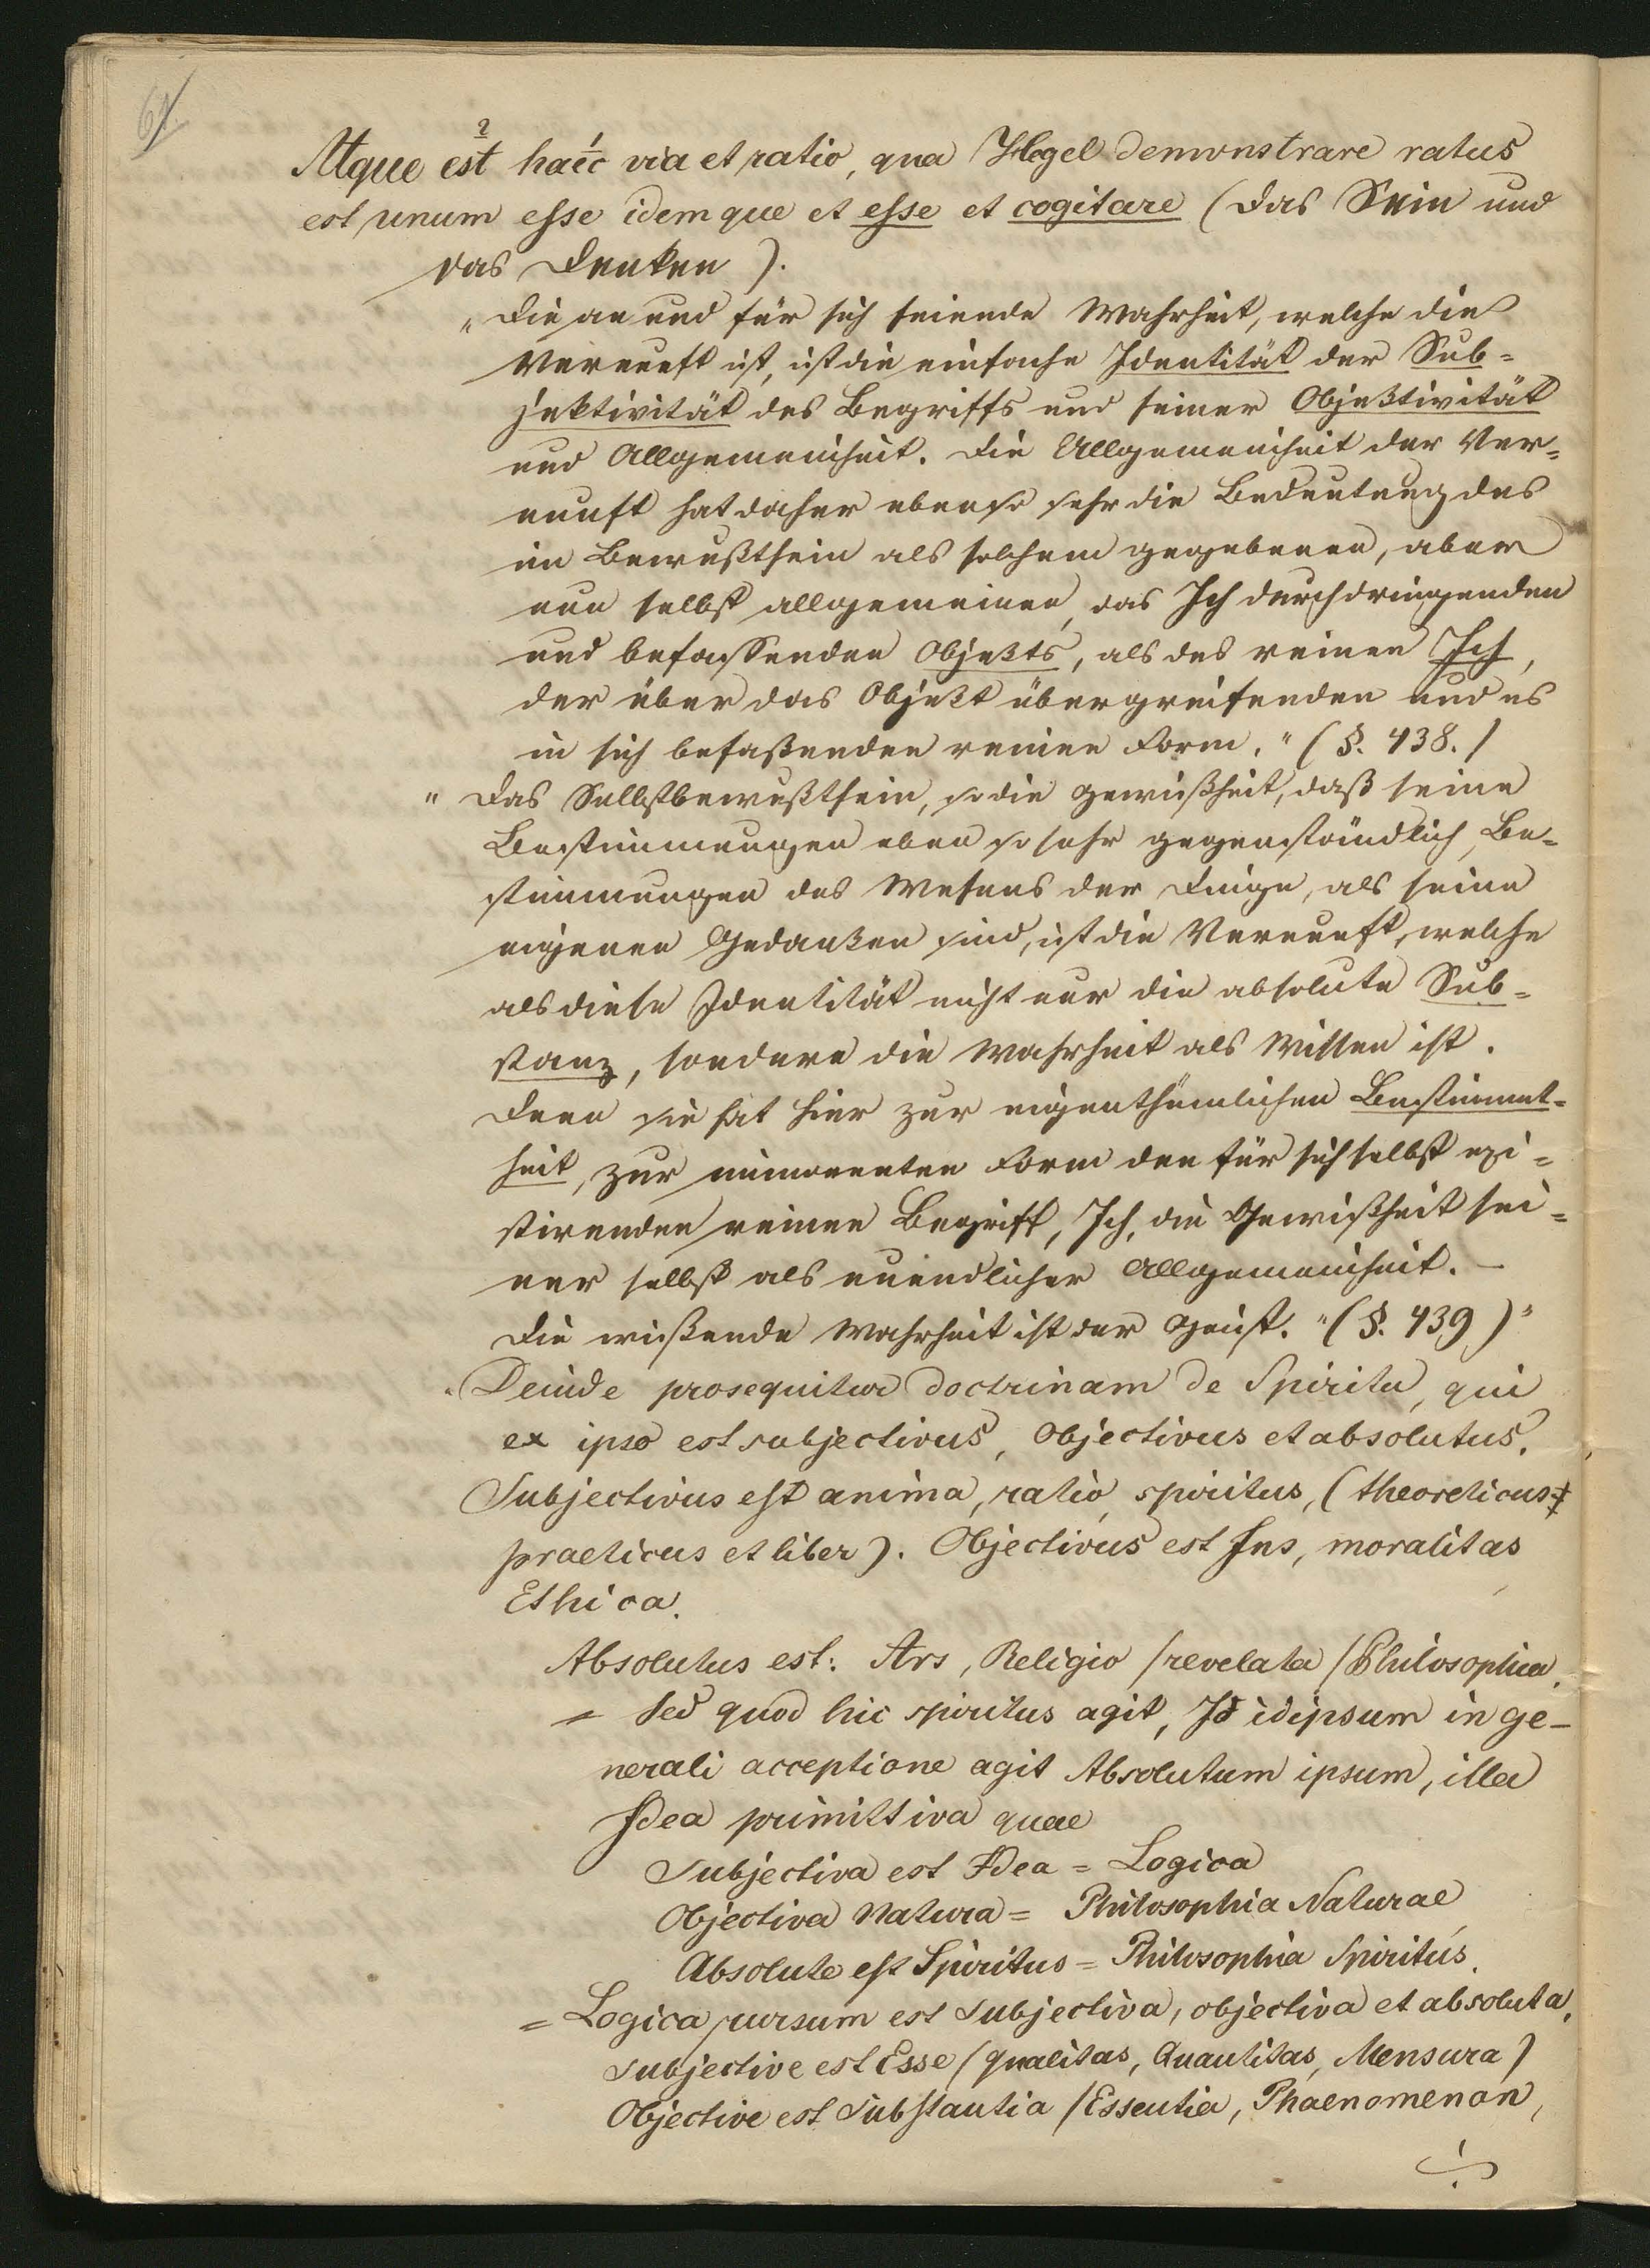 61.
Atque est haec via et ratio, qua Hegel demonstrare ratus
est unum esse idemque et esse et cogitare (das Sein und
das Denken).
„Die an und für sich seiende Wahrheit, welche die
Vernunft ist, ist die einfache Identität der Sub=
jektivität des Begriffs und seiner Objektivität
und Allgemeinheit. Die Allgemeinheit der Ver=
nunft hat daher eben so sehr die Bedeutung des
im Bewußtsein als solchem gegebenen, aber
nun selbst allgemeinen, das Ich durchdringenden
und befassenden Objekts, als des reinen Ich,
der über das Objekt übergreifenden und es
in sich befaßenden reinen Form." (§. 438.)
"Das Selbstbewußtsein, so die Gewißheit, daß seine
Bestimmungen eben so sehr gegenständlich, Be=
stimmungen des Wesens der Dinge, als seine
eigenen Gedanken sind, ist die Vernunft, welche
als diese Identität nicht nur die absolute Sub=
stanz, sondern die Wahrheit als Wissen ist.
Denn sie hat hier zur eigenthümlichen Bestimmt=
heit, zur immanenten Form den für sich selbst exi=
stirenden reinen Begriff, Ich, die Gewißheit sei=
ner selbst als unendlicher Allgemeinheit. –
Die wißende Wahrheit ist der Geist." (§. 439)"
Deinde prosequitur doctrinam de Spiritu, qui
ex ipso est subjectivus, Objectivus et absolutus.
Subjectivus est anima, ratio, spiritus, (theoreticus
practicus et liber). Objectivus est Jus, moralitas
Ethica.
Absolutus est: Ars, Religio (revelata) Philosophia.
= Sed quod hic spiritus agit, Id idipsum in ge-
nerali acceptione agit Absolutum ipsum, illa
Idea primittiva quae
Subjectiva est Idea = Logica
Objectiva Natura = Philosophia Naturae
Absolute est Spiritus = Philosophia Spiritus.
= Logica rursum est subjectiva, objectiva et absoluta.
Subjective est Esse (Qualitas, Quantitas, Mensura)
Objective est Substantia (Essentia, Phaenomenon,